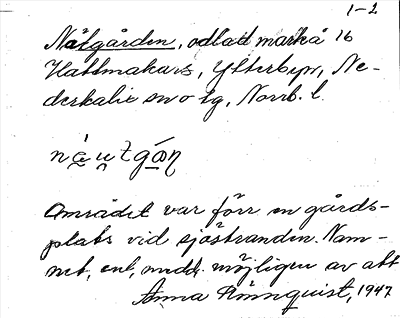 1-2
Nålgården, odlad mark å 16
Hattmakars, Ytterbyn, Ne-
derkalix sn o tg, Norrb. l.
Området var förr en gårds-
plats vid sjöstranden. Nam-
net, enl. medd. möjligen av att
Anna Rönnquist, 1947